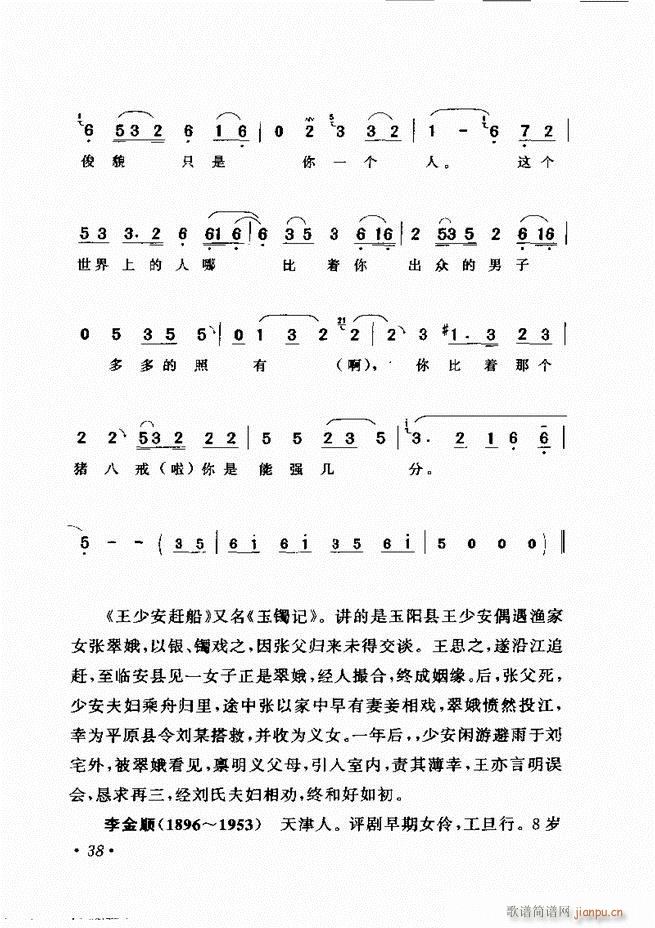 6 532 6 16 | 0 2 3 32 | 1 - 6 72 |
俊貌 只是 你一个 人。 这个
53 3. 2 6 61 6 | 6 35 3 6 16 | 2 535 2 6 16 |
世界上的人哪 比着你 出众的男子
0 5 35 5 | 0 1 3 2 2 | 2 3 #1. 3 23 |
多多的照 有 (啊), 你比着那个
2 2 532 22 | 5 5 235 | 3. 2 1 6 6 |
猪八戒(啦)你是 能强几 分。
5 - - (35 | 6i 6i 35 6i | 5 0 0 0) ‖
《王少安赶船》又名《玉镯记》。讲的是玉阳县王少安偶遇渔家
女张翠娥,以银、镯戏之,因张父归来未得交谈。王思之,遂沿江追
赶,至临安县见一女子正是翠娥,经人撮合,终成姻缘。后,张父死,
少安夫妇乘舟归里,途中张以家中早有妻妾相戏,翠娥愤然投江,
幸为平原县令刘某搭救,并收为义女。一年后,,少安闲游避雨于刘
宅外,被翠娥看见,禀明义父母,引入室内,责其薄幸,王亦言明误
会,恳求再三,经刘氏夫妇相劝,终和好如初。
李金顺(1896～1953) 天津人。评剧早期女伶,工旦行。8岁
· 38 ·
歌谱简谱网 jianpu.cn